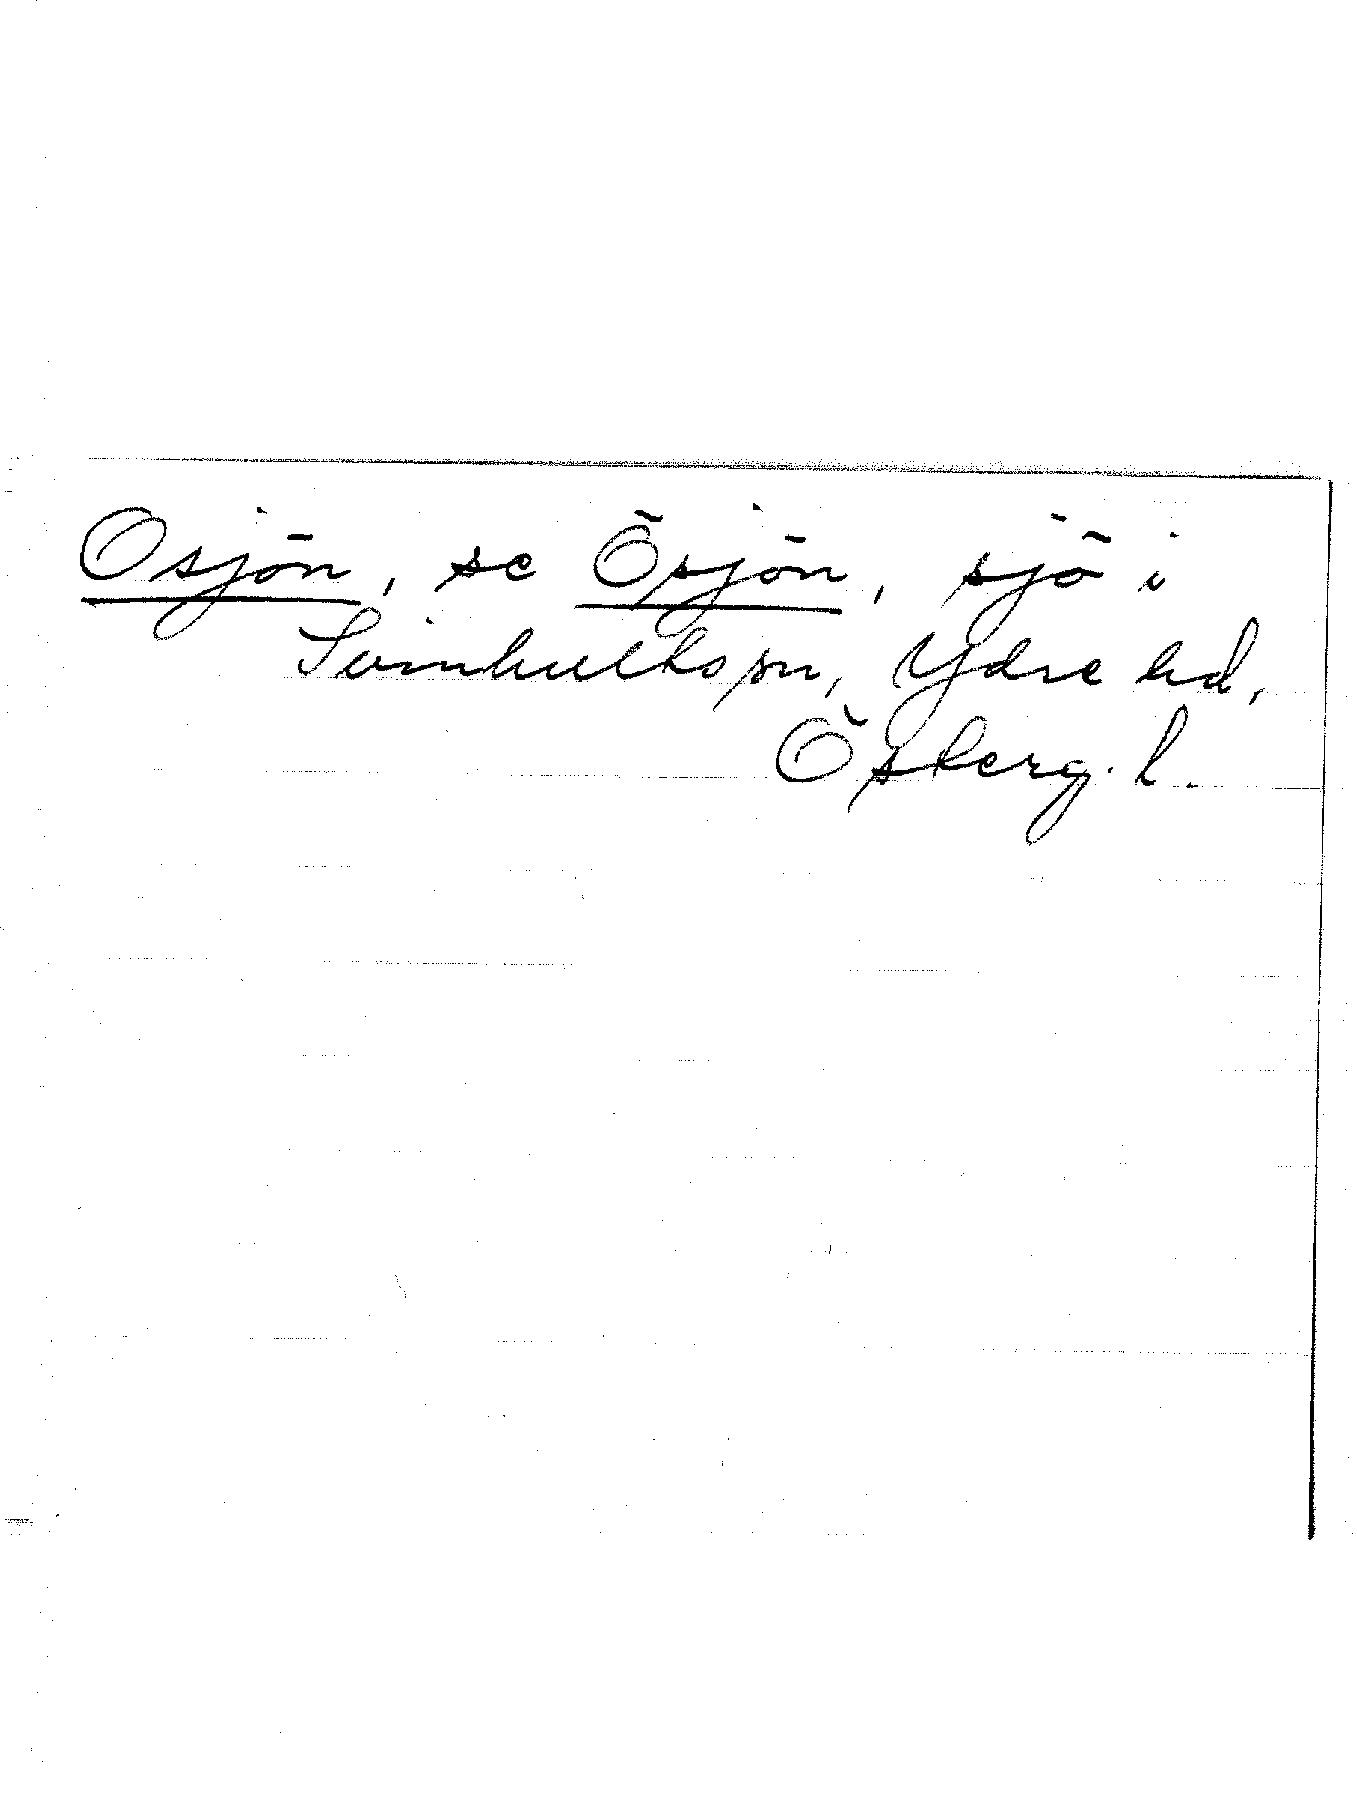 Osjön, se Ösjön, sjö i
Svinhults sn, Ydre hd,
Österg. l.